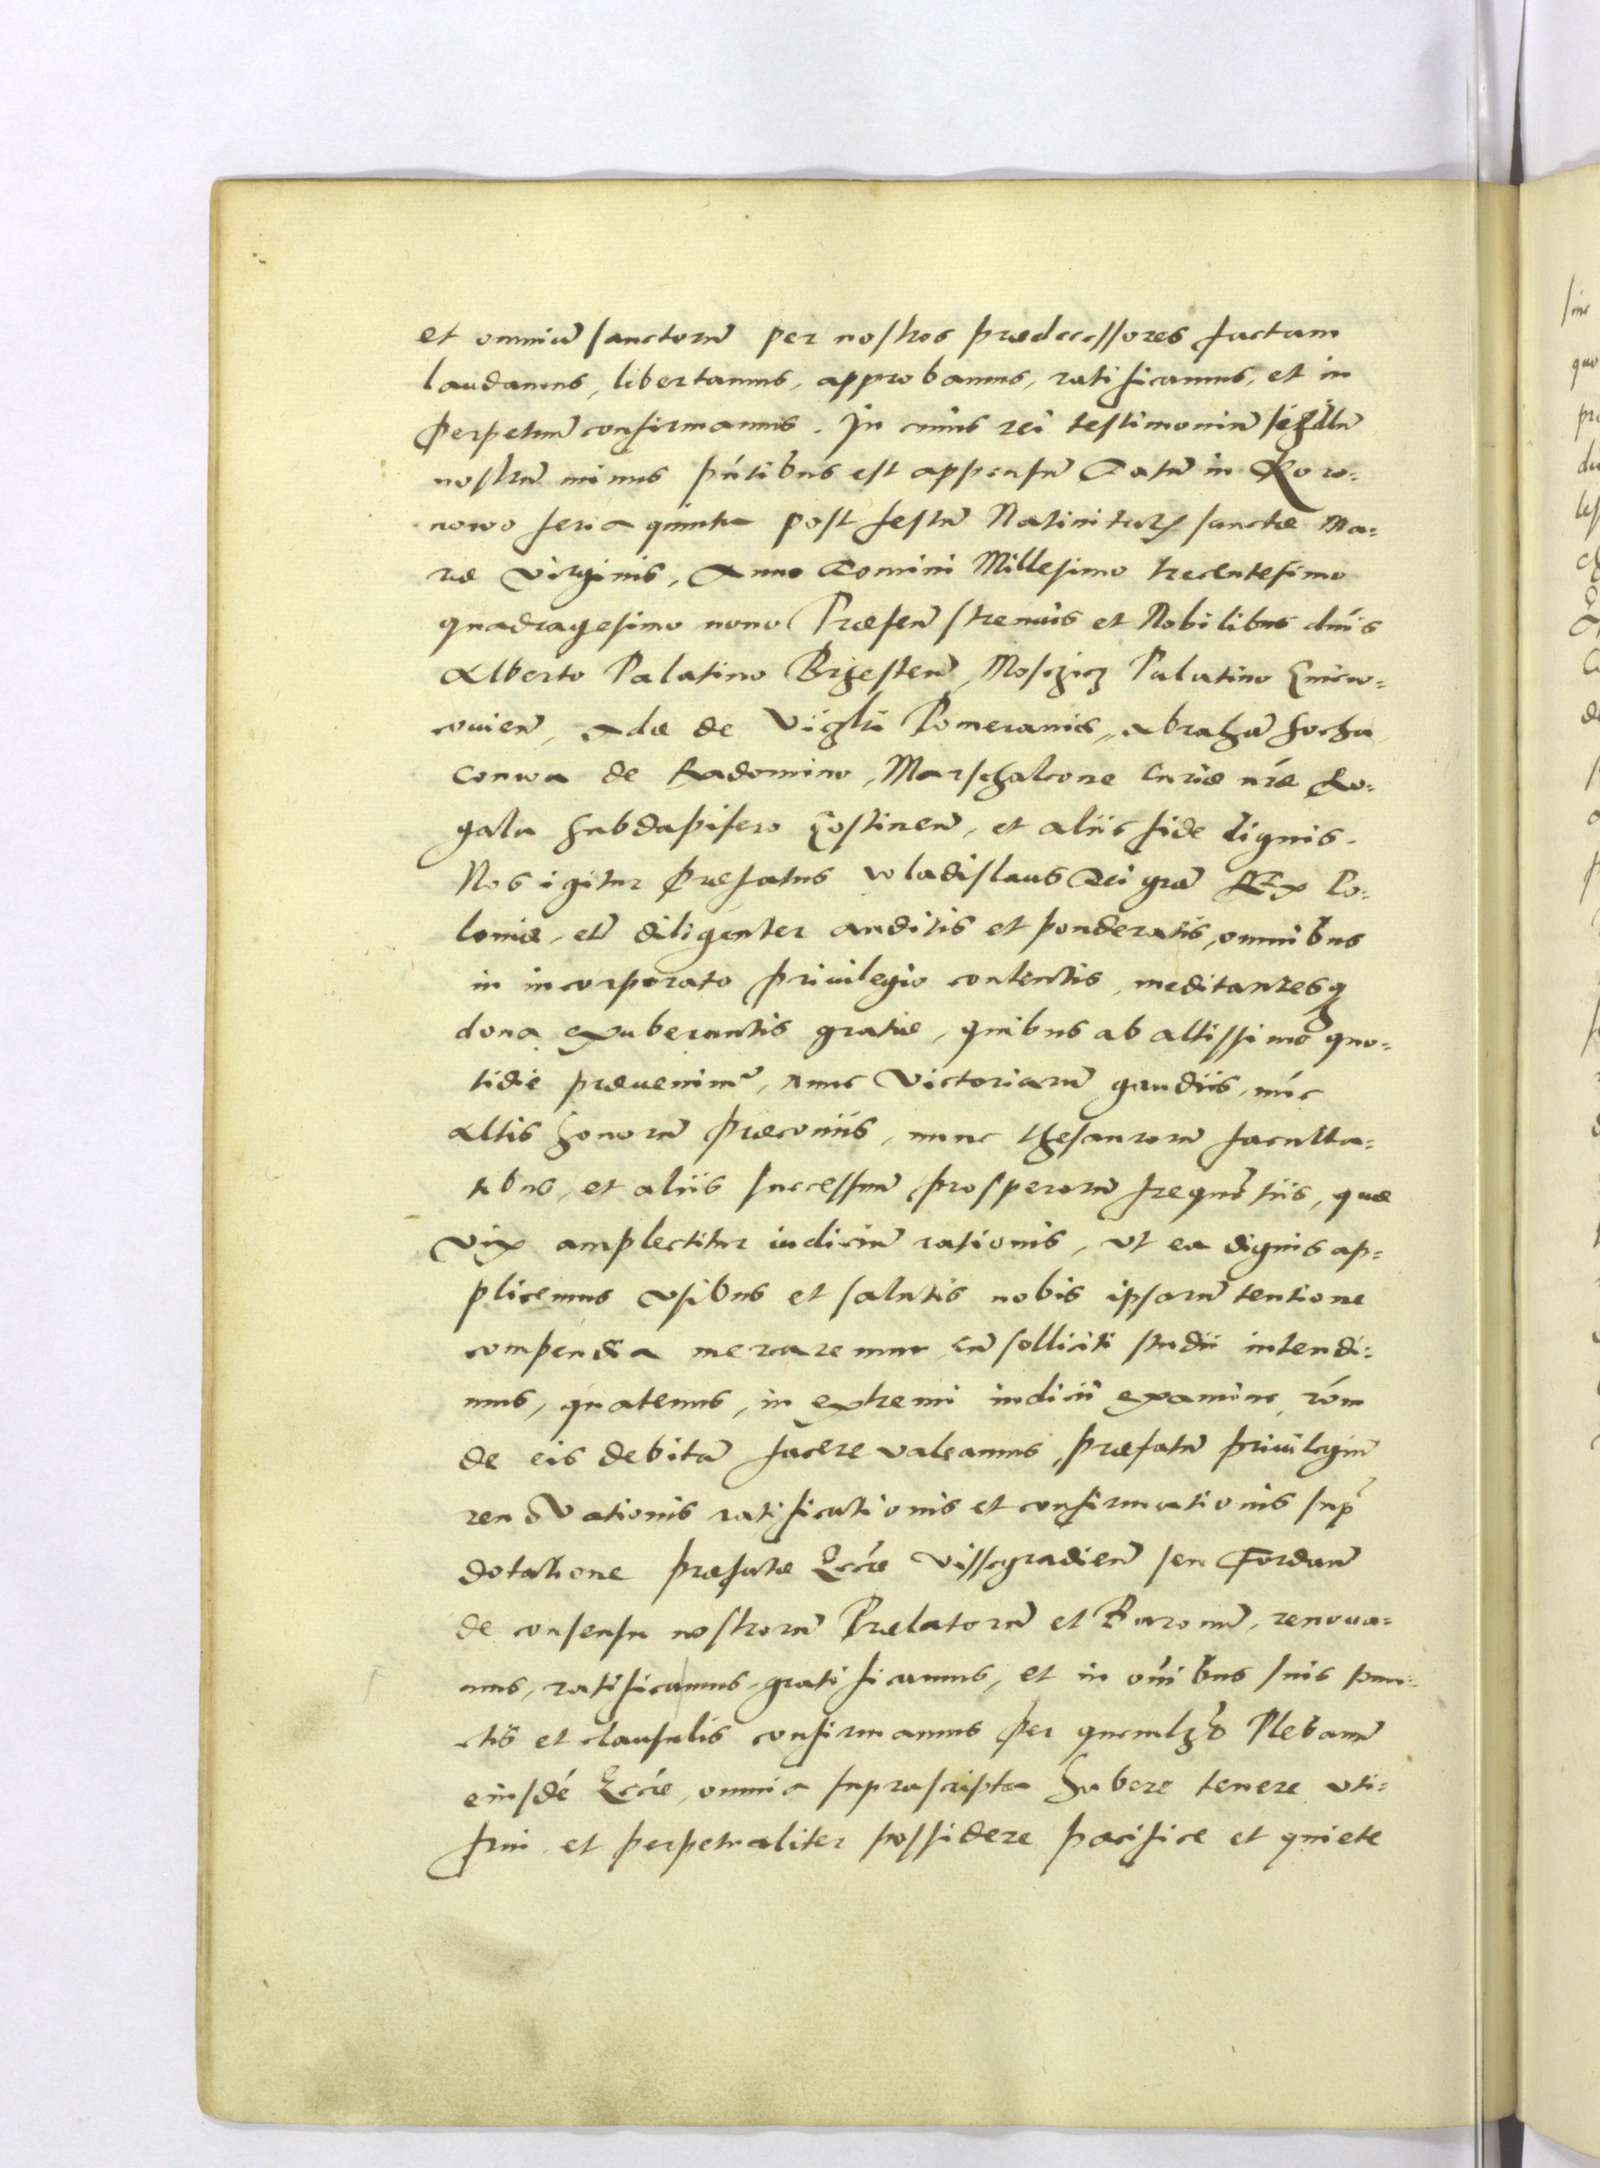 et omniū sanctorū per nostros prædecessores factam
laudamus, libertamus, approbamus, ratificamus, et in
perpetuū confirmamus. In cuius rei testimoniū sigillū
nostrū minus pñtibus est appensū Datū in Koro=
nowo feria quinta post festū Natiuitatis sanctæ Ma=
riæ Virginis, Anno Domini Millesimo trecentesimo
quadragesimo nono Præsen̄ strenuis et Nobilibus dñis
Alberto Palatino Brzesten̄, Mosczicz Palatino Gniew=
couien̄, Adæ de Pomeraniæ, Abrahā Socha
de Radomino, Marschalcone Curiæ nræ Ro=
gala Subdapifero Costinen̄, et aliis fide dignis.
Nos igitur præfatus Wladislaus Dei grā REx Po=
loniæ, etc̄ diligenter auditis et ponderatis, omnibus
in incorporato priuilegio contentis, meditantesq
dona exuberantis gratiæ, quibus ab altissimo quo=
tidie præuenimr, nunc Victoriarū gaudiis, nūc
altis honorū præconiis, nunc thesaurorū faculta=
tibus, et aliis successuū prosperorū frequētiis, quæ
Vix amplectitur iudiciū rationis, Vt ea dignis ap=
plicemus Vsibus et salutis nobis ipsarū tentione
compendia mercaremur, cū solliciti studii intendi=
mus, quatenus, in extremi iudicii examine, rōm
de eis debitā facere valeamus, præfatū priuilegiū
renoVationis ratificationis et confirmationis sup
dotatione præfatæ Eccliæ Vissegradien̄ seu Fordan̄
de consensu nostrorū Prælatorū et Baronū, renoua=
mus, ratificamus, gratificamus, et in oībus suis pun=
ctis et clausulis confirmamus per quemlzt Plebanū
eiusdē Eccliæ, omnia suprascripta habere tenere vti=
frui et perpetualiter possidere pacifice et quiete